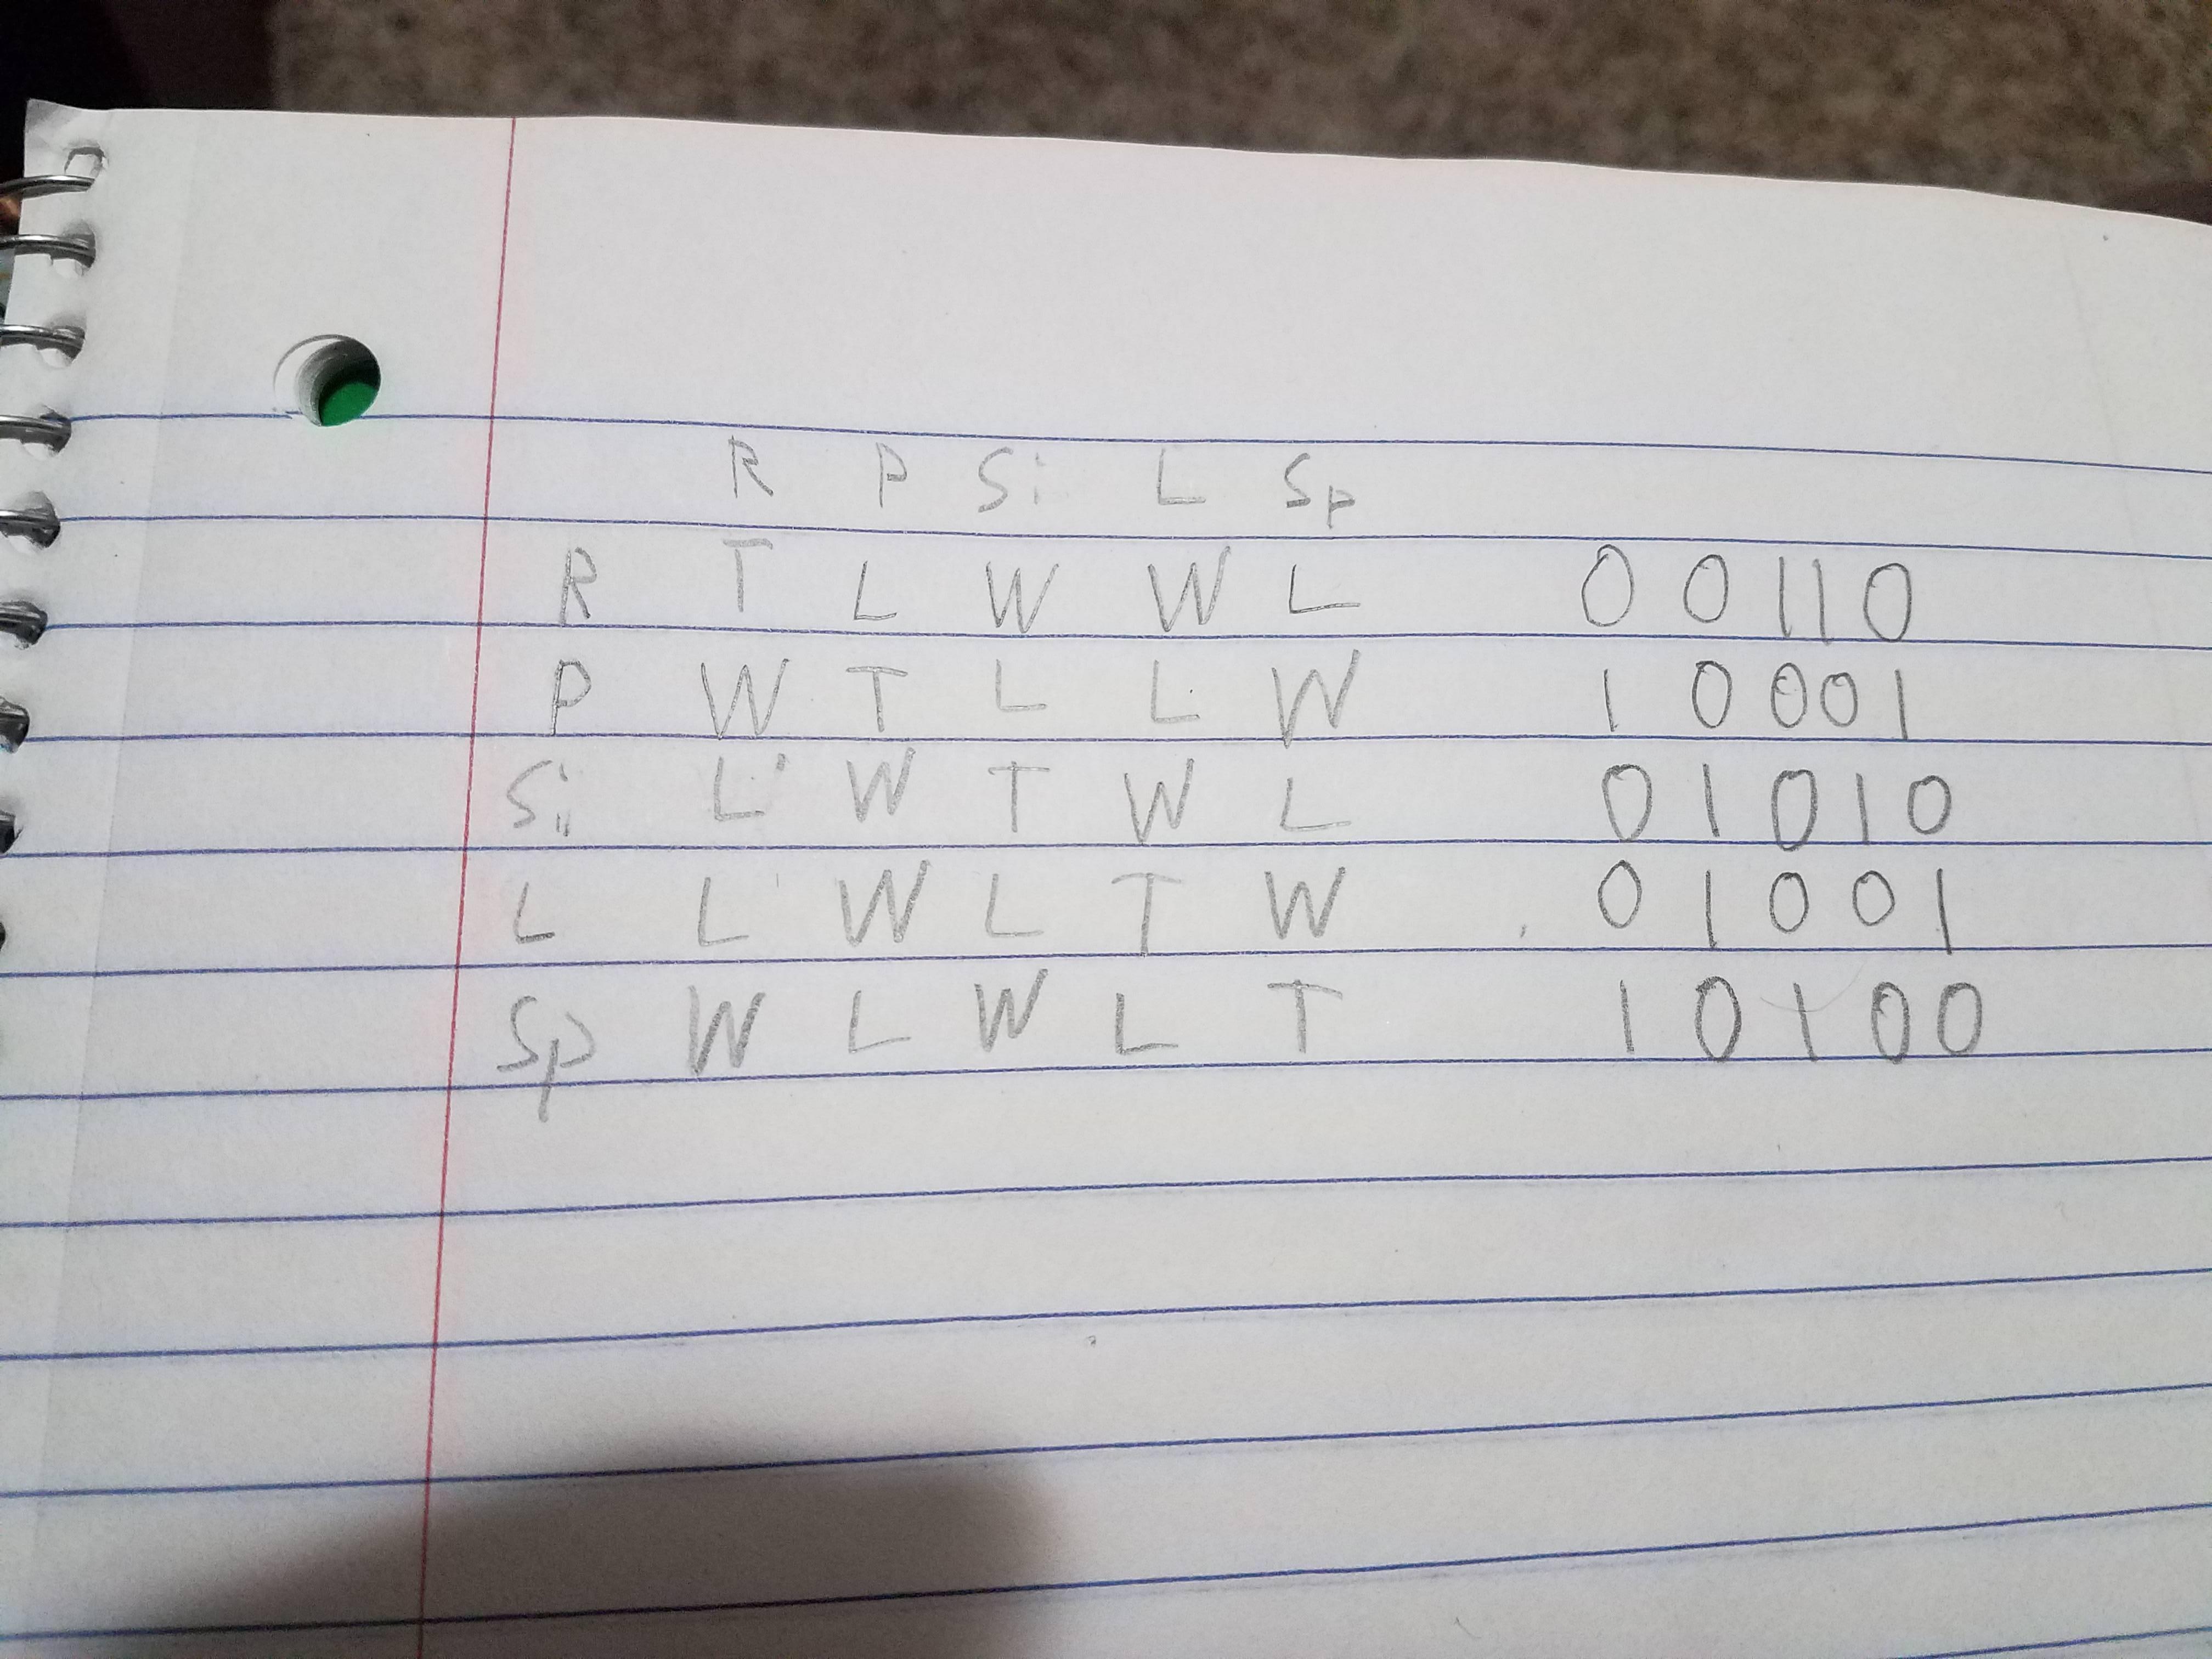 R P Si L Sp
R T L W W L 0 0 1 1 0
P W T L L W 1 0 0 0 1
Si L W T W L 0 1 0 1 0
L L W L T W 0 1 0 0 1
Sp W L W L T 1 0 1 0 0